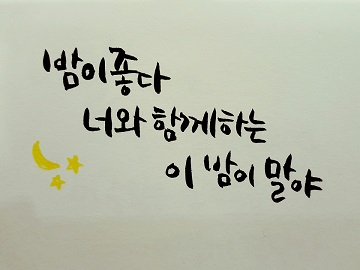 밤이 좋다
너와 함께하는
이 밤이 말야